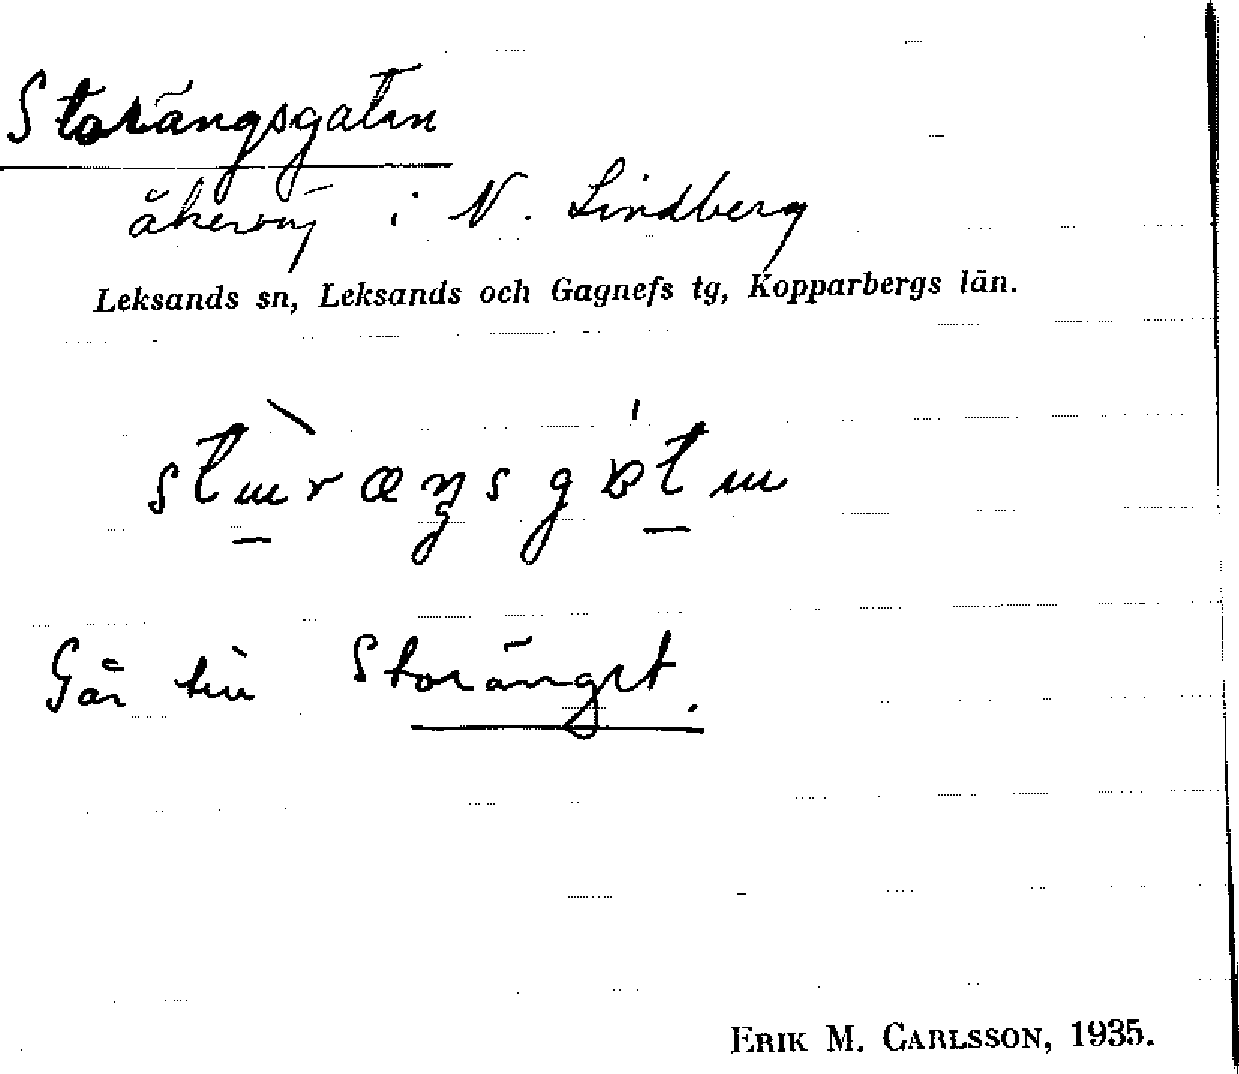 Storängsgatun
åkerväg i N. Lindberg
Leksands sn, Leksands och Gagnefs tg, Kopparbergs län.
Går till Storängst.
ERIK M. CARLSSON, 1935.